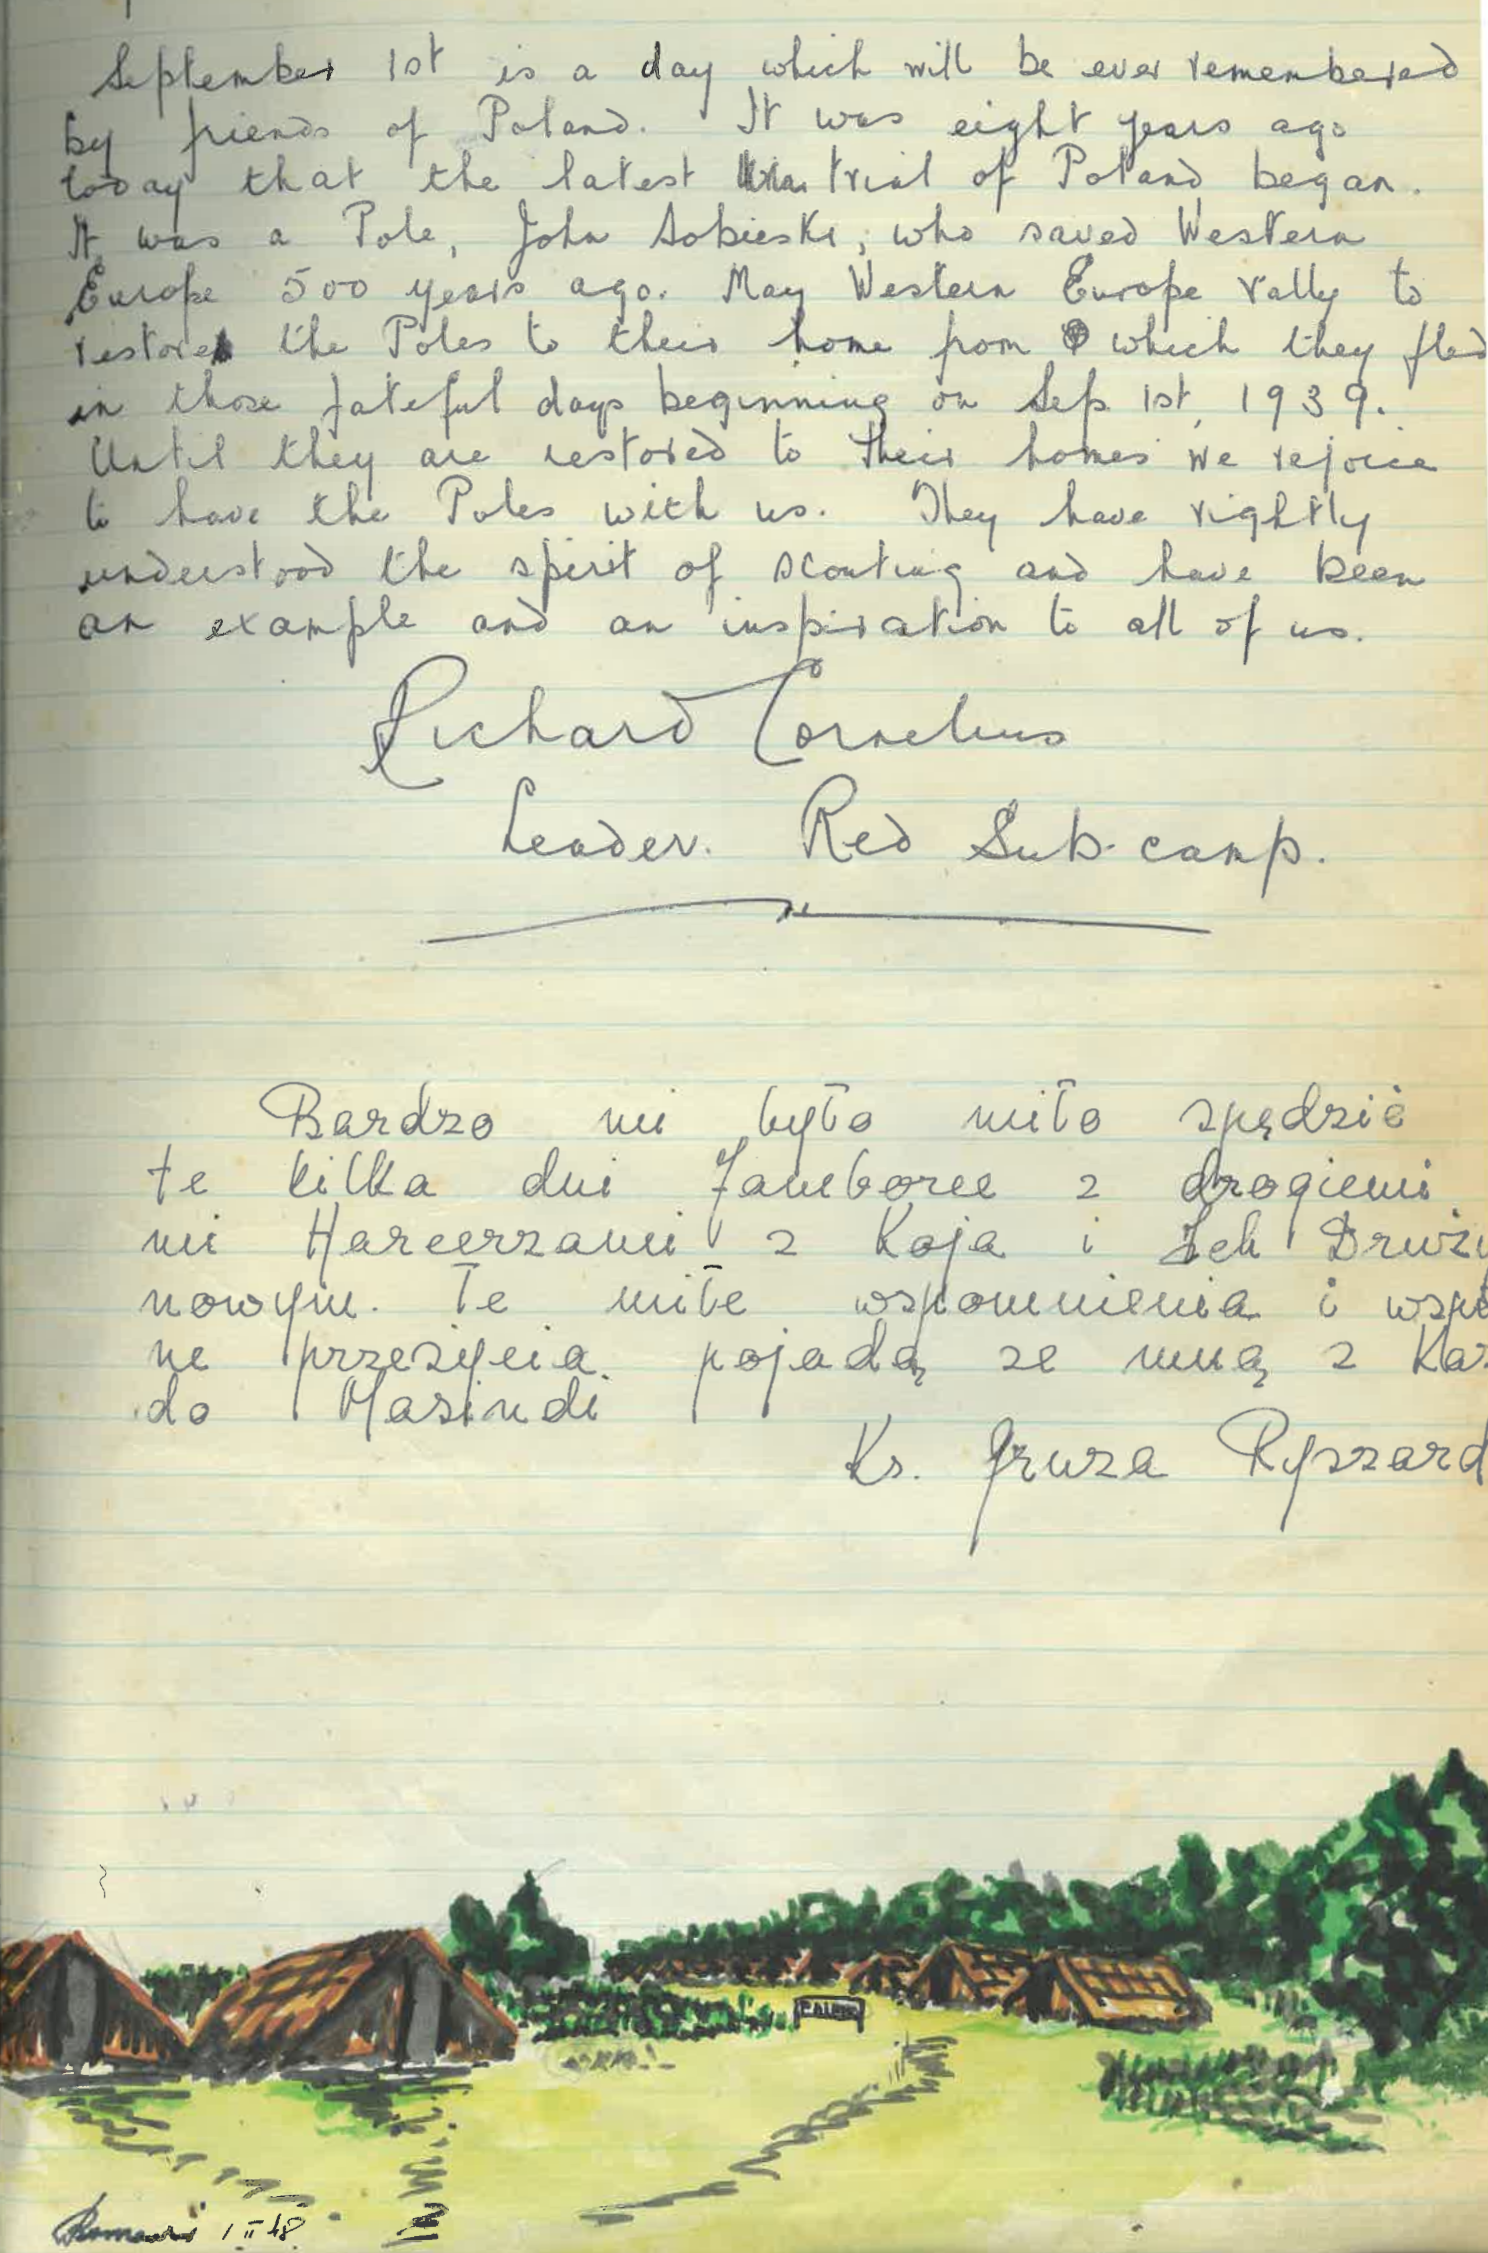 September 1st is a day which will be ever remembered
by friends of Poland. It was eight years ago
today that the latest trial of Poland began.
It was a Pole, John Sobieski, who saved Western
Europe 500 years ago. May Western Europe rally to
restore the Poles to their home from which they fled
in those fateful days beginning on Sep. 1st, 1939.
Until they are restored to their homes we rejoice
to have the Poles with us. They have rightly
understood the spirit of scouting and have been
an example and an inspiration to all of us.
Richard Cornelius
Leader. Red Sub-camp.
Bardzo mi było miło spędzić
te kilka dni Jamboree z drogiemi
mi Harcerzami z Koja i Ich Druży
nowym. Te miłe wspomnienia i wspó
ne przeżycia pojadą ze mną z Ka
do Masindi
Ks. Gruza Ryszard
1 II 48